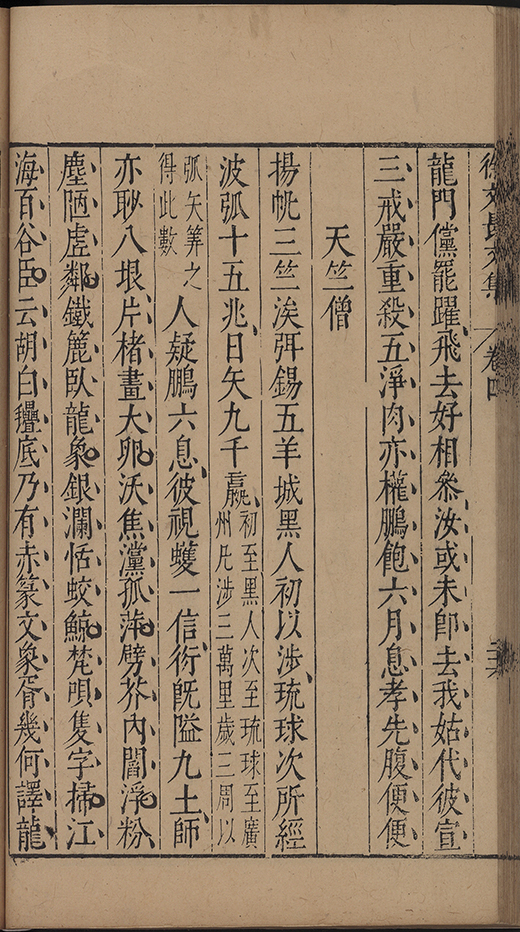 徐文長文集 卷四
龍門儻罷躍飛去好相叅汝或未卽去我姑代彼宣
三戒嚴重殺五淨肉亦權鵬飽六月息孝先腹便便
天竺僧
揚帆三竺涘弭錫五羊城黑人初以涉琉球次所經
波弧十五兆日矢九千贏初至黑人次至琉球至廣州凡涉三萬里歲三周以
弧矢筭之得此數人疑鵬六息彼視蠖一信衍旣隘九土師
亦眇八垠片楮畫大卵沃焦灙孤萍劈芥內閻浮粉
塵陋虗鄰鐵簏臥龍象銀瀾恬蛟鯨梵唄隻字掃江
海百谷臣云胡白㲲底乃有赤篆文象胥幾何譯龍